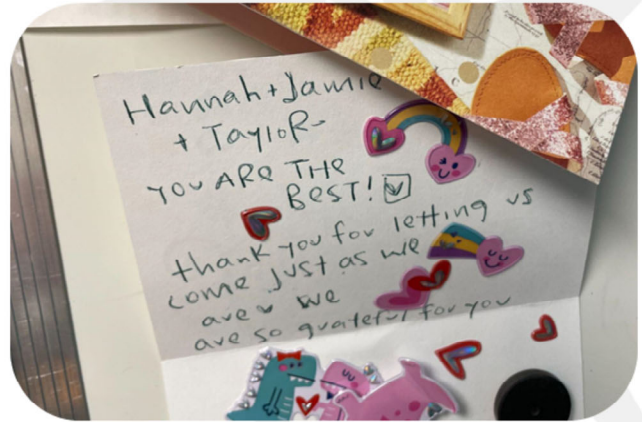 Hannah + Jamie
+ Taylor-
YOU ARE THE
BEST!
thank you for letting us
come just as we
are we
are so grateful for you